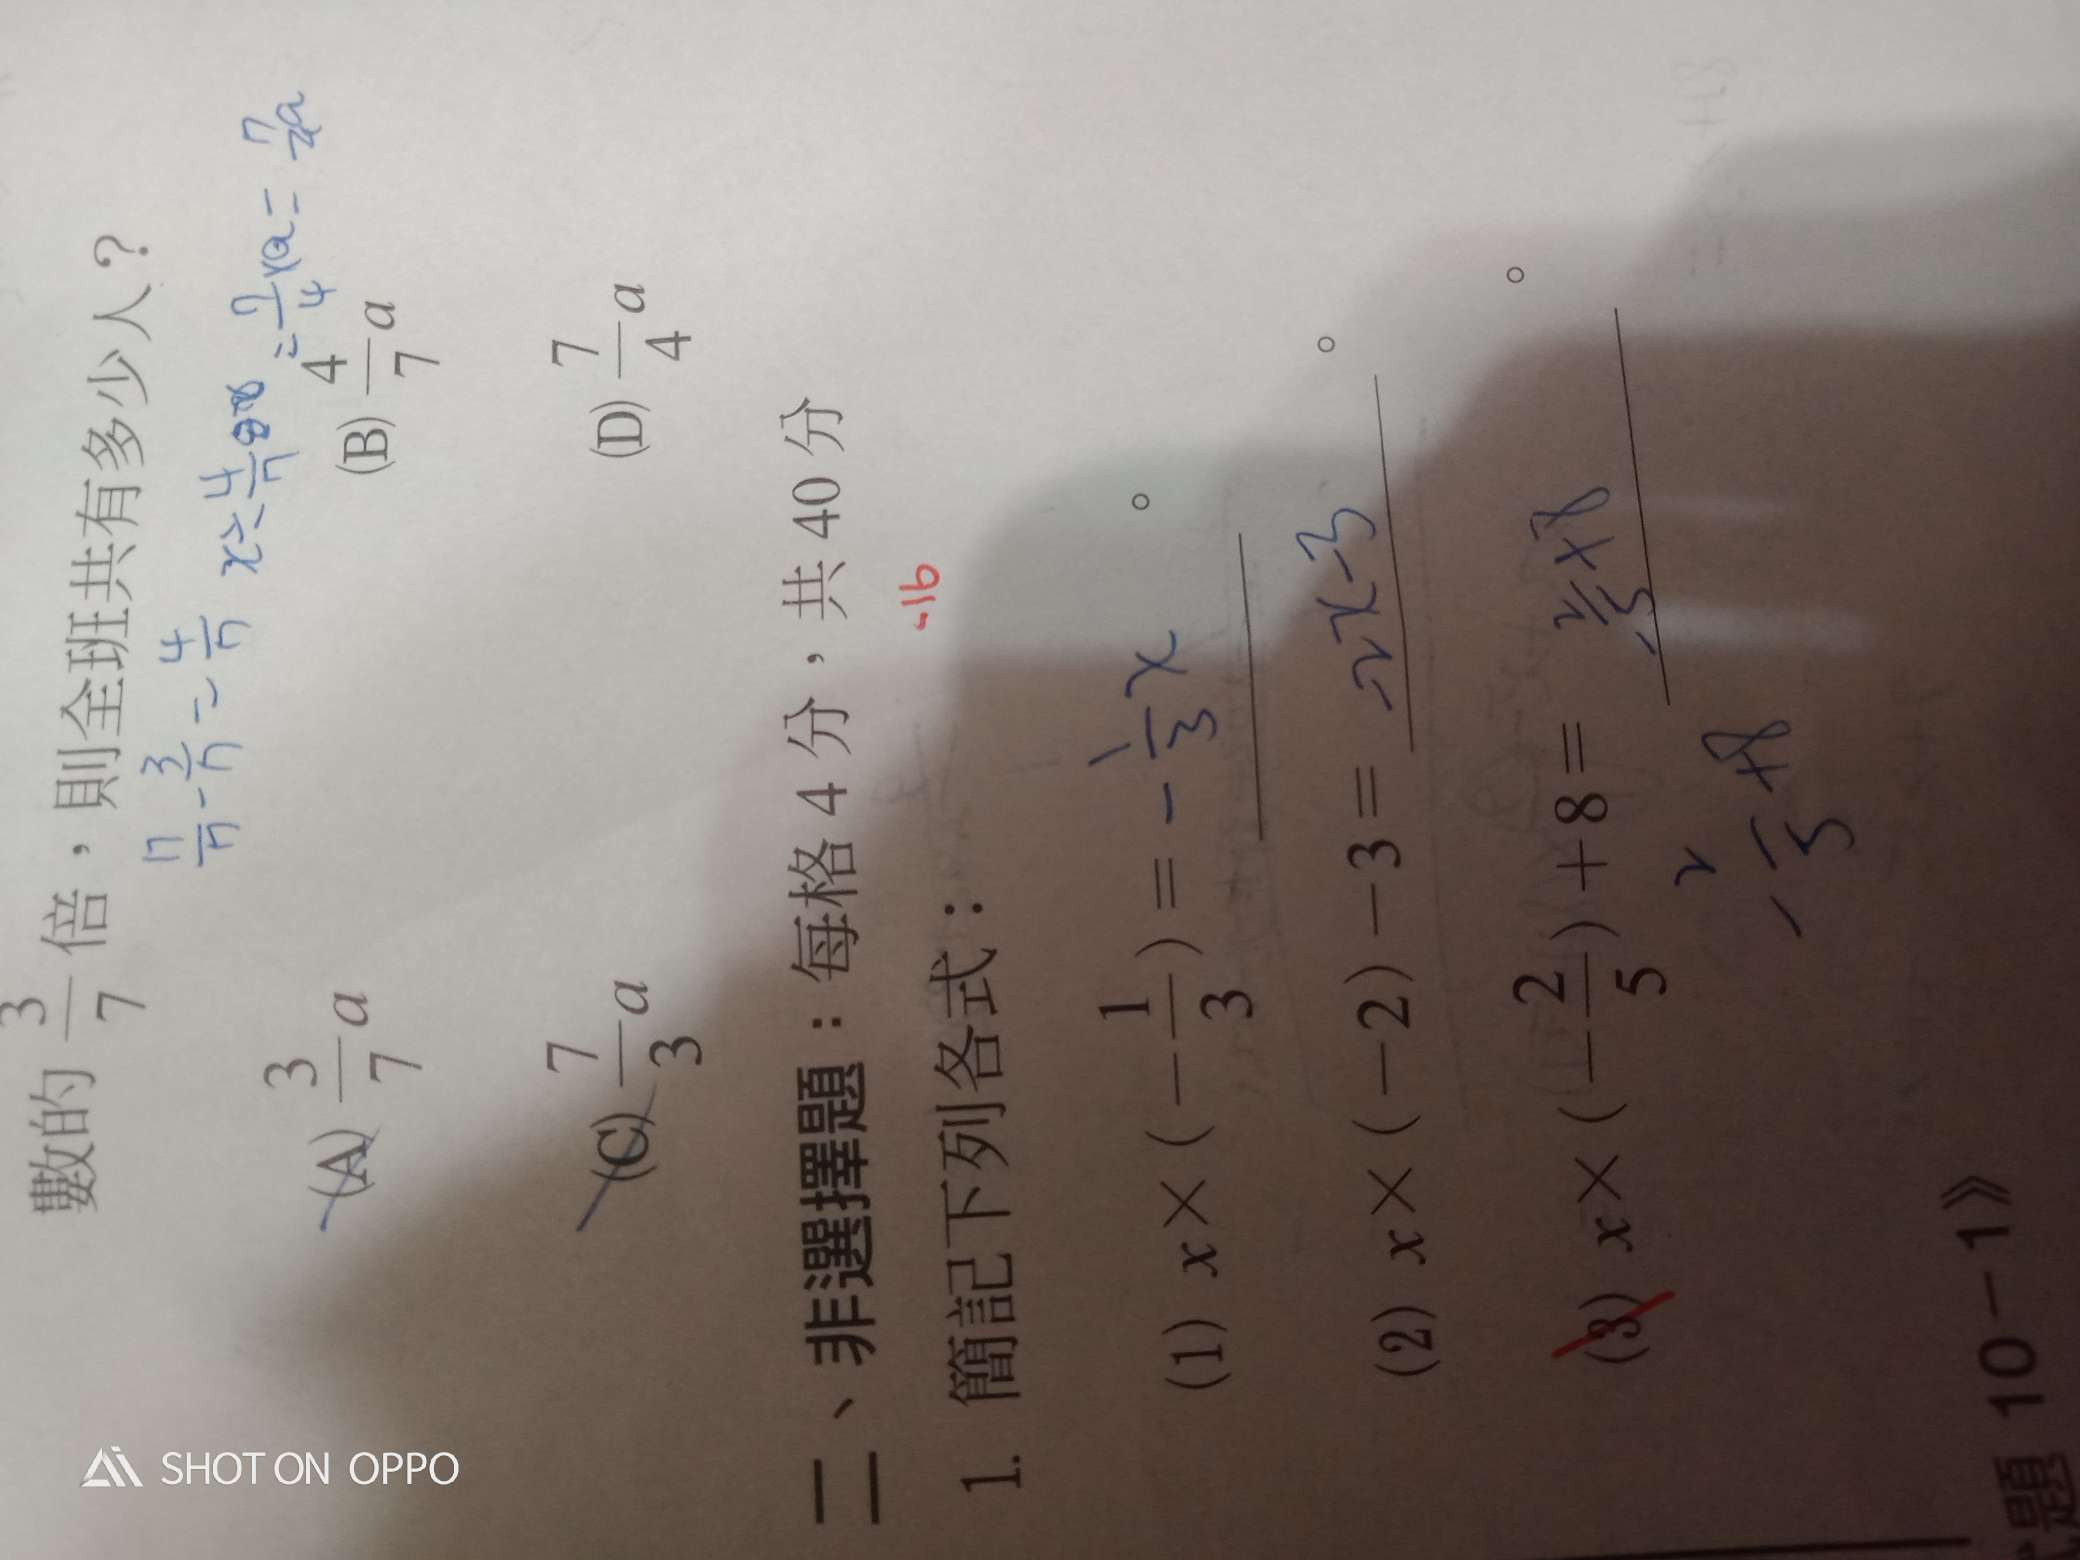 數的 3/7 倍，則全班共有多少人？
7/7 - 3/7 = 4/7
= 7/4 × a = 7/4 a
(A) 3/7 a (B) 4/7 a
(C) 7/3 a (D) 7/4 a
二、非選擇題：每格 4 分，共 40 分
-16
1. 簡記下列各式：
(1) x×(-1/3)= -1/3 x 。
(2) x×(-2)-3= -2x-3 。
(3) x×(-2/5)+8= -2/5+8 。
-2/5+8
題 10-1》
SHOT ON OPPO